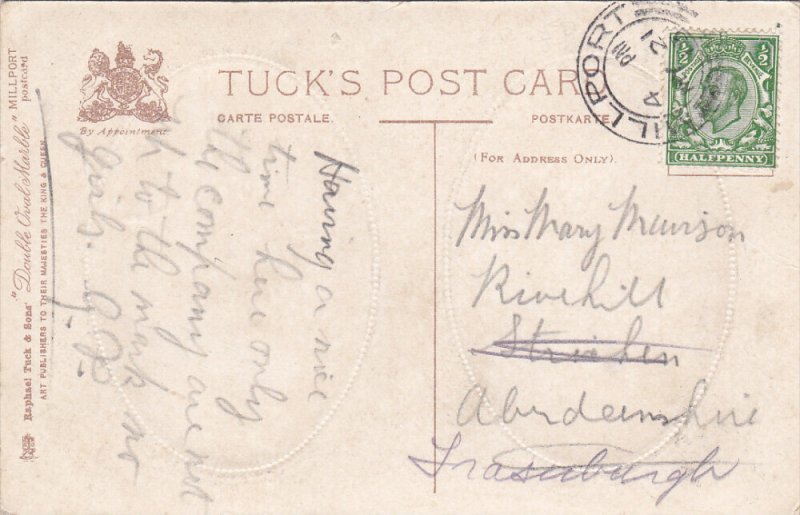 TUCK'S POST CAR
CARTE POSTALE.
POSTKARTE
(FOR ADDRESS ONLY).
By Appointment
Raphael Tuck & Sons' "Double Oval Marble" MILLPORT postcard
ART PUBLISHERS TO THEIR MAJESTIES THE KING & QUEEN.
MILLPORT
PM
12
½ ½
HALFPENNY
Having a nice
time here only
the company are not
to the mark no
girls.
Miss Mary
Rivehill
Strichen
Aberdeenshire
Fraserburgh